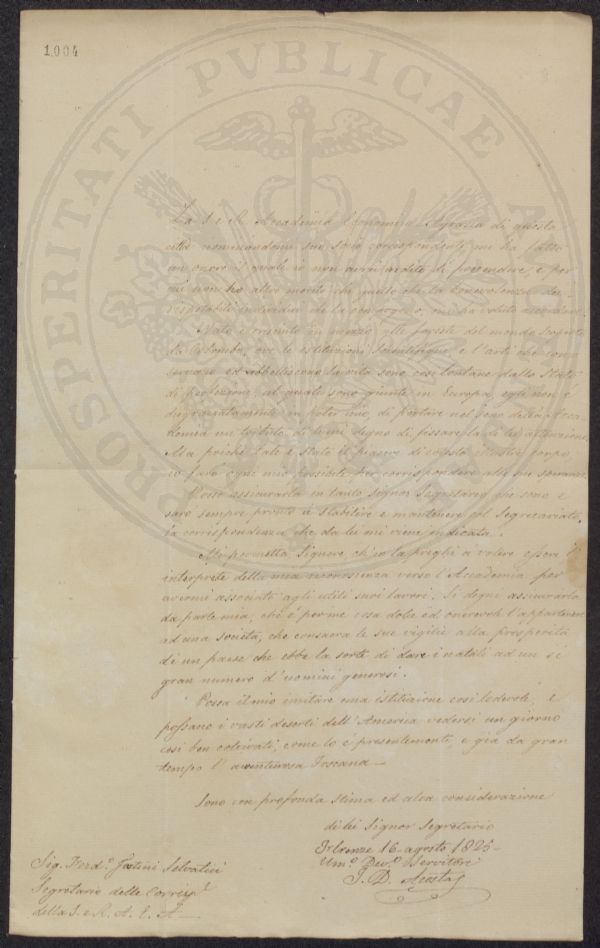 1004
PROSPERITATI PVBLICAE AVGENDAE
La I. e R. Accademia Economico Agraria di questa
città nominandomi suo socio corrispondente mi ha fatto
un onore il quale io non avrei ardito di pretendere, e per
cui non ho altro merito che quello che la benevolenza dei
rispettabili individui che la compongono, mi ha voluto accordare.
Nato e cresciuto in mezzo alle foreste del mondo scoperto
da Colombo, ove le istituzioni scientifiche e l'arti che con
servano ed abbelliscono la vita sono così lontane dallo stato
di perfezione, al quale sono giunte in Europa, egli non è
disgraziatamente in poter mio, di portare nel seno della Acca
demia un tributo di lumi degno di fissare la di lei attenzione.
Ma poichè tale è stato il piacere di codesto illustre corpo,
io farò ogni mio possibile per corrispondere alle sue speranze.
Posso assicurarla in tanto Signor Segretario che sono e
sarò sempre pronto a stabilire e mantenere col Segretariato,
la corrispondenza che da lei mi viene indicata.
Mi permetta, Signore, ch'io la preghi a volere essere l'
interprete della mia riconoscenza verso l'Accademia per
avermi associato agli utili suoi lavori. Si degni assicurarla
da parte mia, che è per me cosa dolce ed onorevole l'appartenere
ad una società, che consacra le sue vigilie alla prosperità
di un paese che ebbe la sorte di dare i natali ad un sì
gran numero d'uomini generosi.
Possa il mio imitare una istituzione così lodevole, e
possano i vasti deserti dell'America vedersi un giorno
così ben coltivati, come lo è presentemente, e già da gran
tempo l'avventurosa Toscana—
Sono con profonda stima ed alta considerazione
di lei Signor Segretario
Firenze 16 agosto 1825
Um.o Dev.o Servitore
J. D. Acosta
Sig. Ferd.o Tartini Salvatici
Segretario delle Corrisp.
della I. e R. A. E. A—